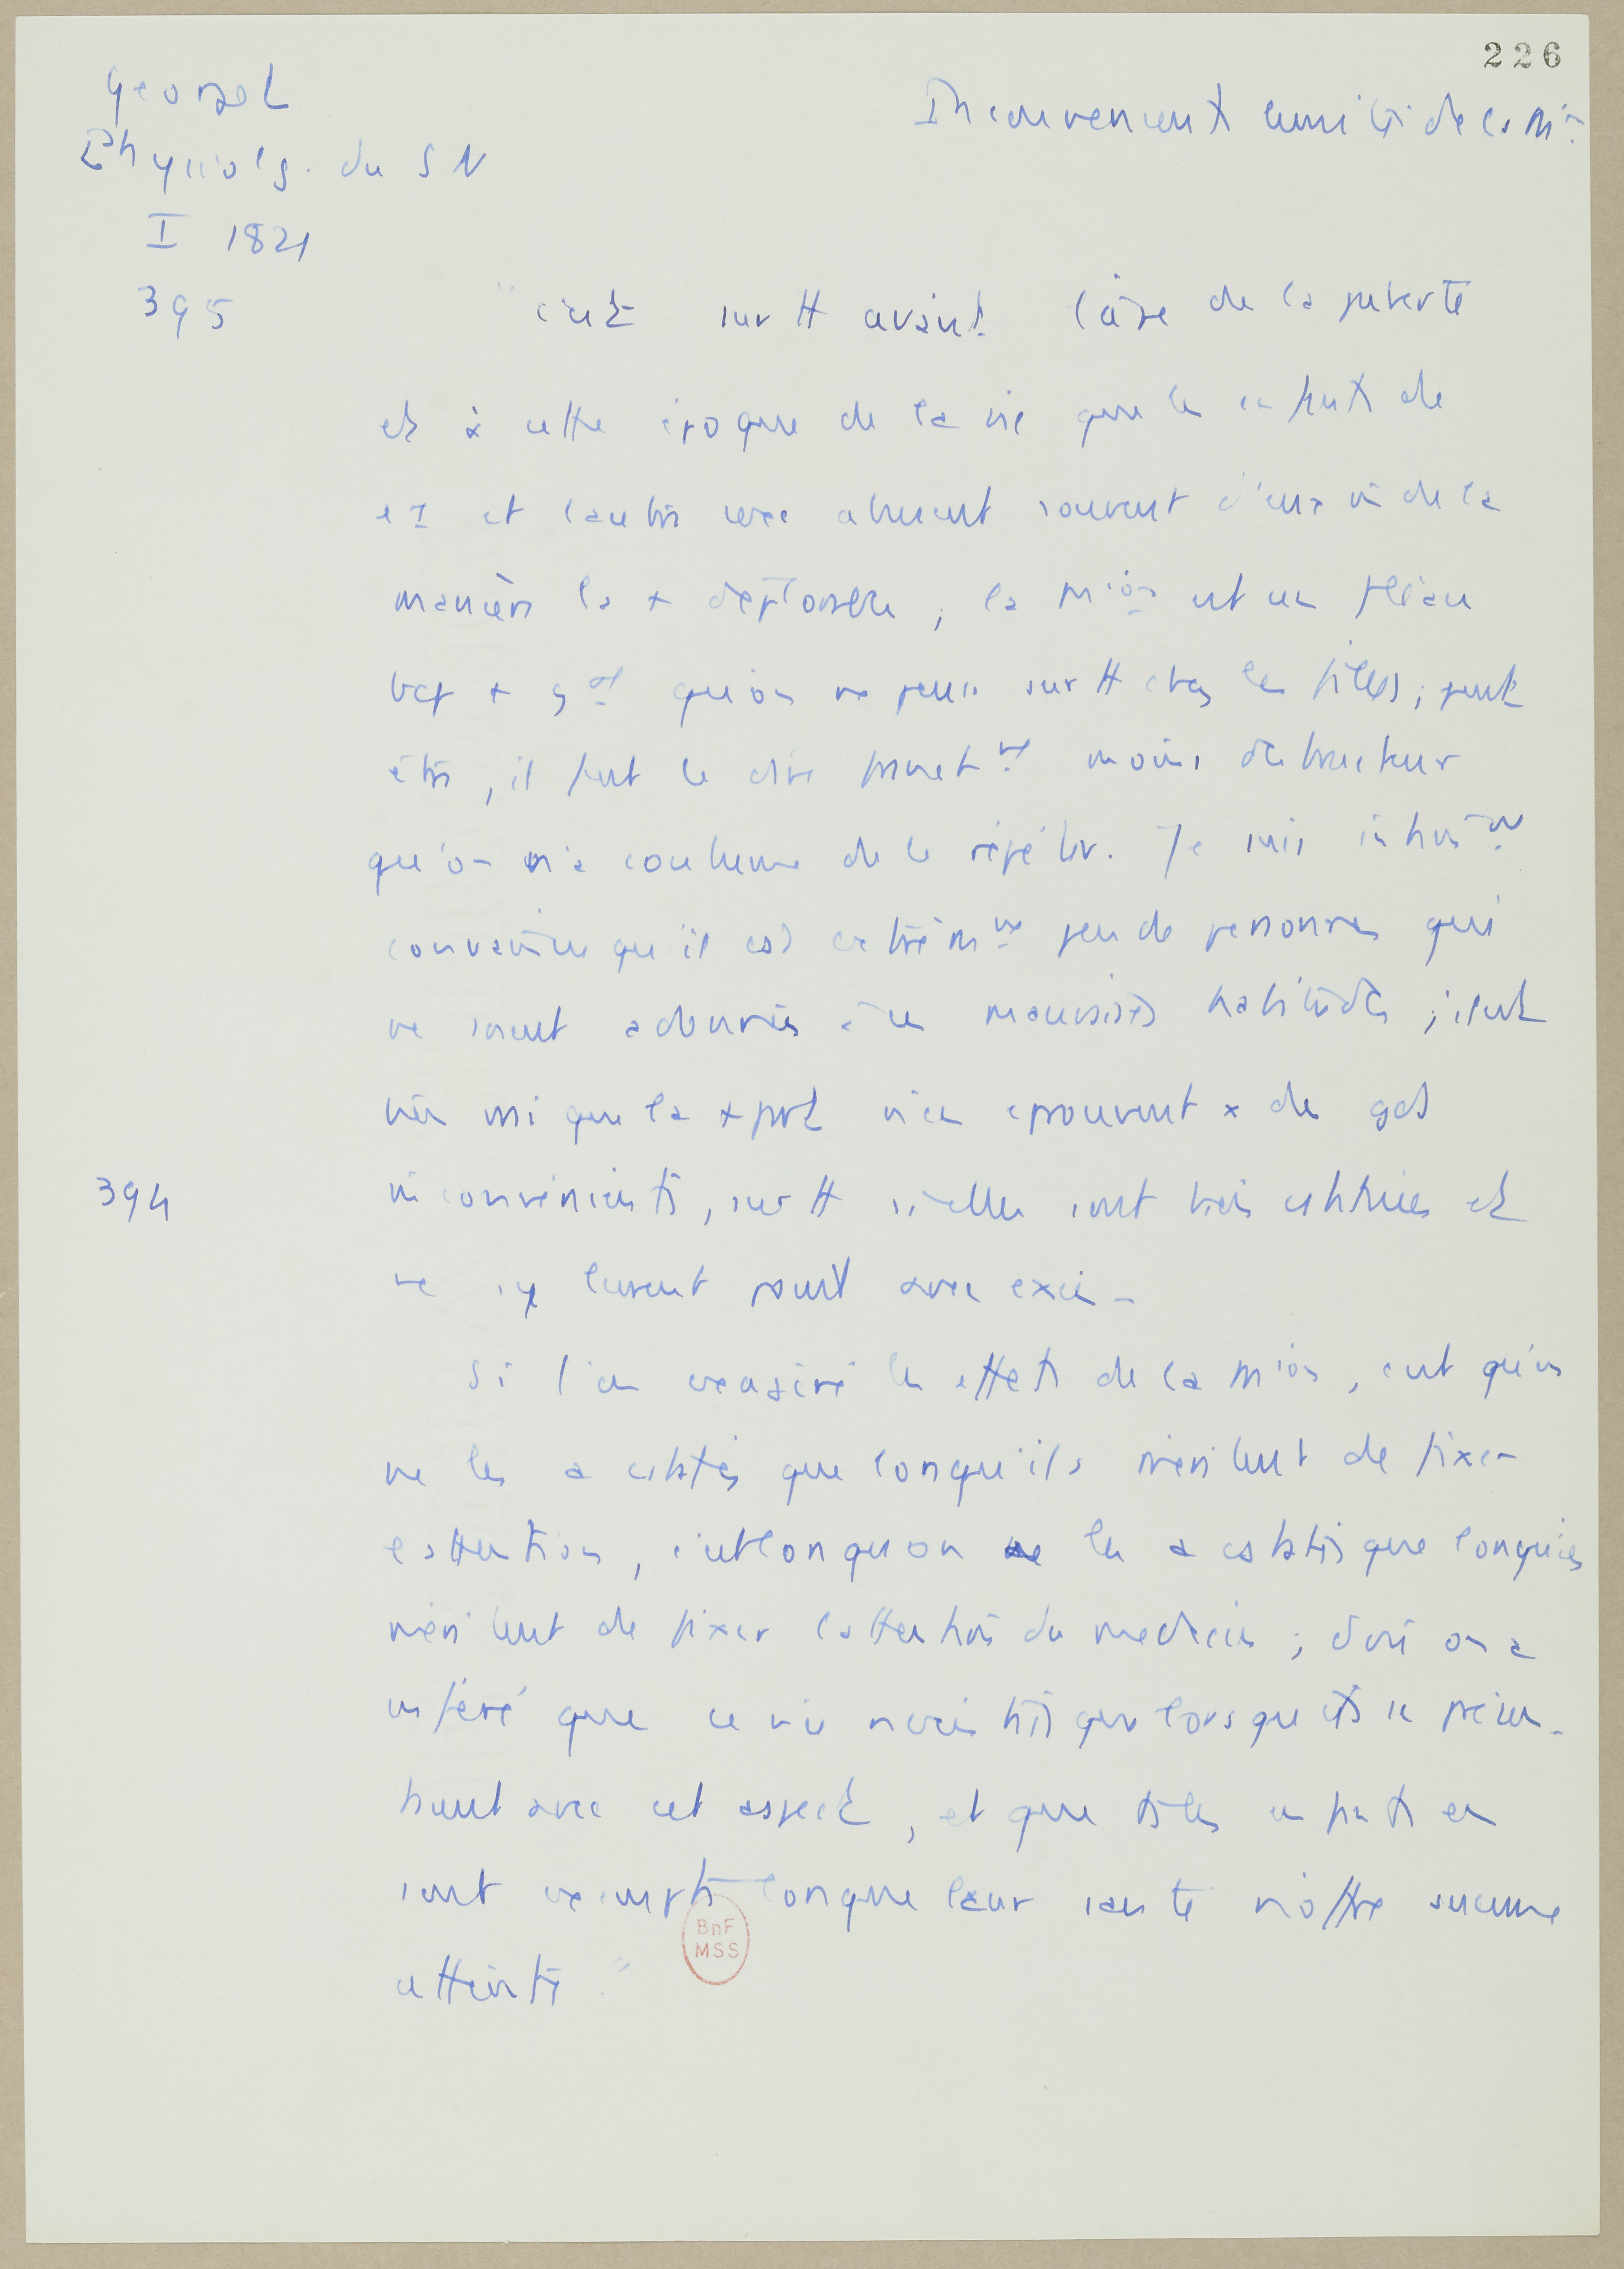 226
Georget
Physiolog. du SN
I 1821
395
Inconvenients limités de la Mion
"c'est surtt avant l'âge de la puberté
et à cette époque de la vie que les enfants de
et l'autre sexe abusent souvent d'eux de la
manière la + déplorable ; la Mion est un fléau
bcp + gal qu'on ne pense surtt chez les filles ; peut
être, il faut le dire moins destructeur
qu'on n'a coutume de le répéter. Je suis intimemt
convaincu qu'il est extrêmemt peu de personnes qui
ne soient adonnées à ces mauvaises habitudes ; il est
très vrai que la + part n'en éprouvent x de gds
394
inconvénients, surtt si elles sont bien constituées et
ne s'y livrent point avec excès
Si l'on exagéré les effets de la Mion, c'est qu'on
ne les a constatés que lorsqu'ils méritent de fixer
l'attention, c'est lorsqu'on les a constatés que lorsqu'ils
méritent de fixer l'attention du médecin ; d'où on a
inféré que ce vice n'existe que lorsque ils se présen-
tent avec cet aspect, et que ts les enfants en
sont exempts lorsque leur santé n'offre aucune
atteinte"
BnF
MSS